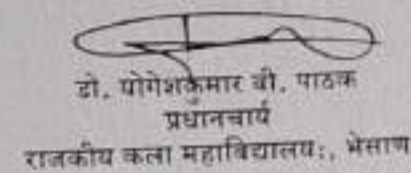 डो. योगेशकुमार बी. पाठक
प्रधानचार्य
राजकीय कला महाविद्यालयः, भेसाण